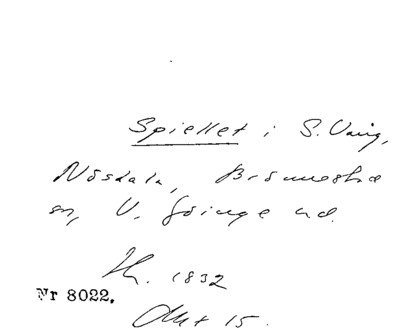 Spiellet i S. Vång,
Nösdala, Brönnestad
sn, V. Göinge hd.
Th. 1832
Nr 8022.
Akt 15.